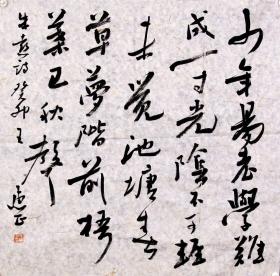 少年易老學難
成一寸光陰不可輕
未覺池塘春
草夢階前梧
葉已秋聲
朱熹詩癸卯王